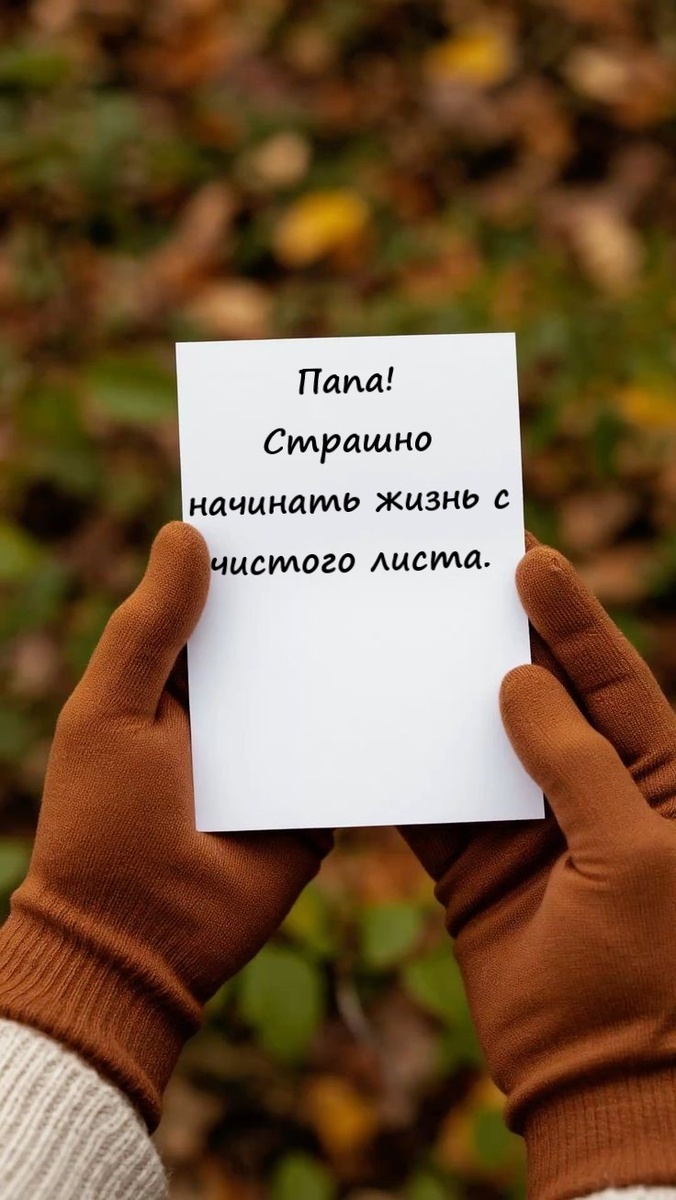 Папа!
Страшно
начинать жизнь с
чистого листа.